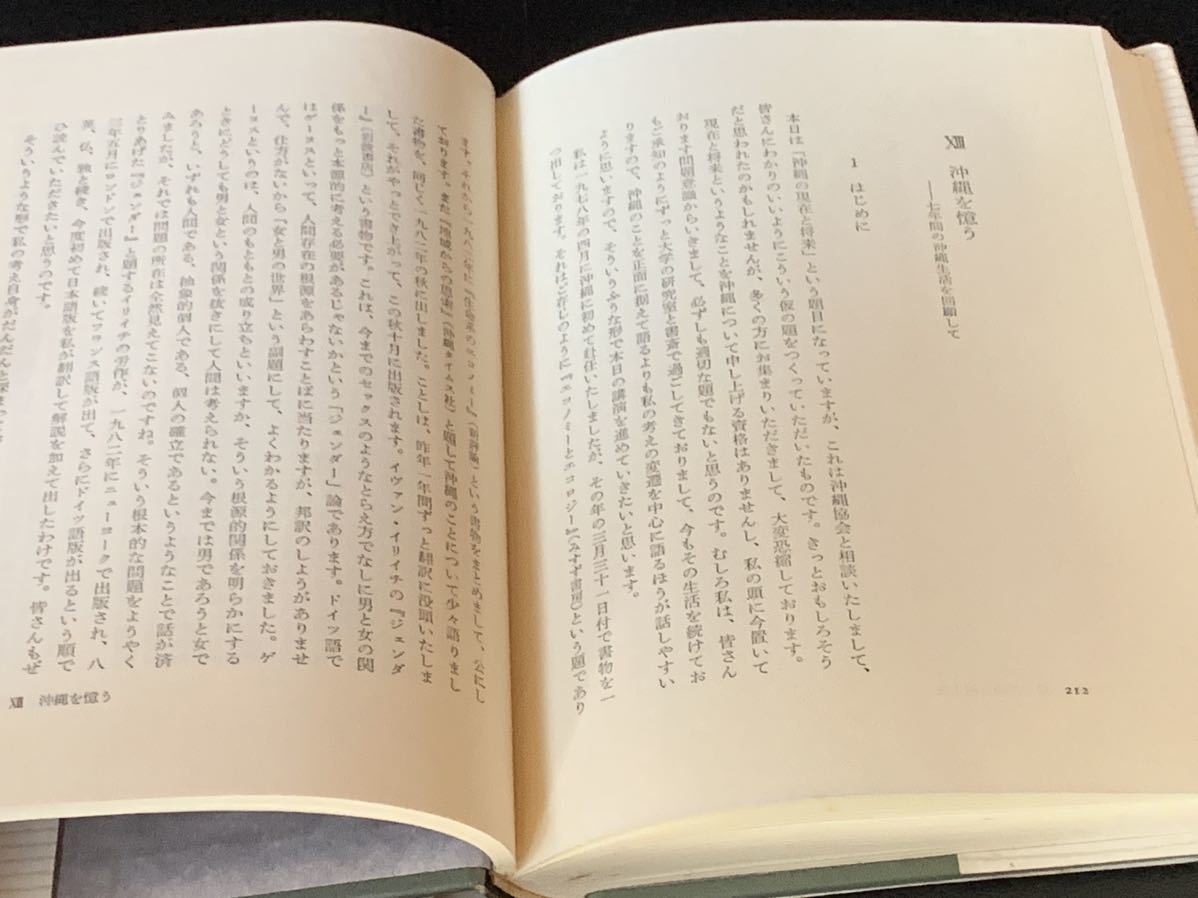 XIII 沖縄を憶う
――七年間の沖縄生活を回顧して
1 はじめに
本日は「沖縄の現在と将来」という題目になっていますが、これは沖縄協会と相談いたしまして、
皆さんにわかりのいいようにこういう仮の題をつくっていただいたものです。きっとおもしろそう
だと思われたのかもしれませんが、多くの方にお集まりいただきまして、大変恐縮しております。
現在と将来というようなことを沖縄について申し上げる資格はありませんし、私の頭に今置いて
おります問題意識からいきまして、必ずしも適切な題でもないと思うのです。むしろ私は、皆さん
もご承知のようにずっと大学の研究室と書斎で過ごしてきておりまして、今もその生活を続けてお
りますので、沖縄のことを正面に捉えて語るよりも私の考えの変遷を中心に語るほうが話しやすい
ように思いますので、そういうふうな形で本日の講演を進めていきたいと思います。
私は一九七八年の四月に沖縄に初めて赴任いたしましたが、その年の三月三十一日付で書物を一
つ出しております。それはご存じのように『エコノミーとエコロジー』(みすず書房)という題であり
212
ます。それから一九八二年に『生命系のエコノミー』(新評論)という書物をまとめまして、公にし
ております。また『地域からの思索』(沖縄タイムス社)と題して沖縄のことについて少々語りまし
た書物を、同じく一九八二年の秋に出しました。ことしは、昨年一年間ずっと翻訳に没頭いたしま
して、それがやっとでき上がって、この秋十月に出版されます。イヴァン・イリイチの『ジェンダ
ー』(岩波書店)という書物です。これは、今までのセックスのようなとらえ方でなしに男と女の関
係をもっと本源的に考える必要があるじゃないかという「ジェンダー」論であります。ドイツ語で
はゲーヌスといって、人間存在の根源をあらわすことばに当たりますが、邦訳のしようがありませ
んで、仕方がないから「女と男の世界」という副題にして、よくわかるようにしておきました。ゲ
ーヌスというのは、人間のもともとの成り立ちといいますか、そういう根源的関係を明らかにする
ときにどうしても男と女という関係を抜きにして人間は考えられない。今までは男であろうと女で
あろうと、いずれも人間である、抽象的個人である、個人の確立であるというようなことで話が済
みましたが、それでは問題の所在は全然見えてこないのですね。そういう根本的な問題をようやく
とりあげた『ジェンダー』と題するイリイチの労作が、一九八二年にニューヨークで出版され、八
三年五月にロンドンで出版され、続いてフランス語版が出て、さらにドイツ語版が出るという順で
英、仏、独と続き、今度初めて日本語版を私が翻訳して解説を加えて出したわけです。皆さんもぜ
ひ読んでいただきたいと思うのです。
そういうような形で私の考え自身がだんだんと深まって
XIII 沖縄を憶う